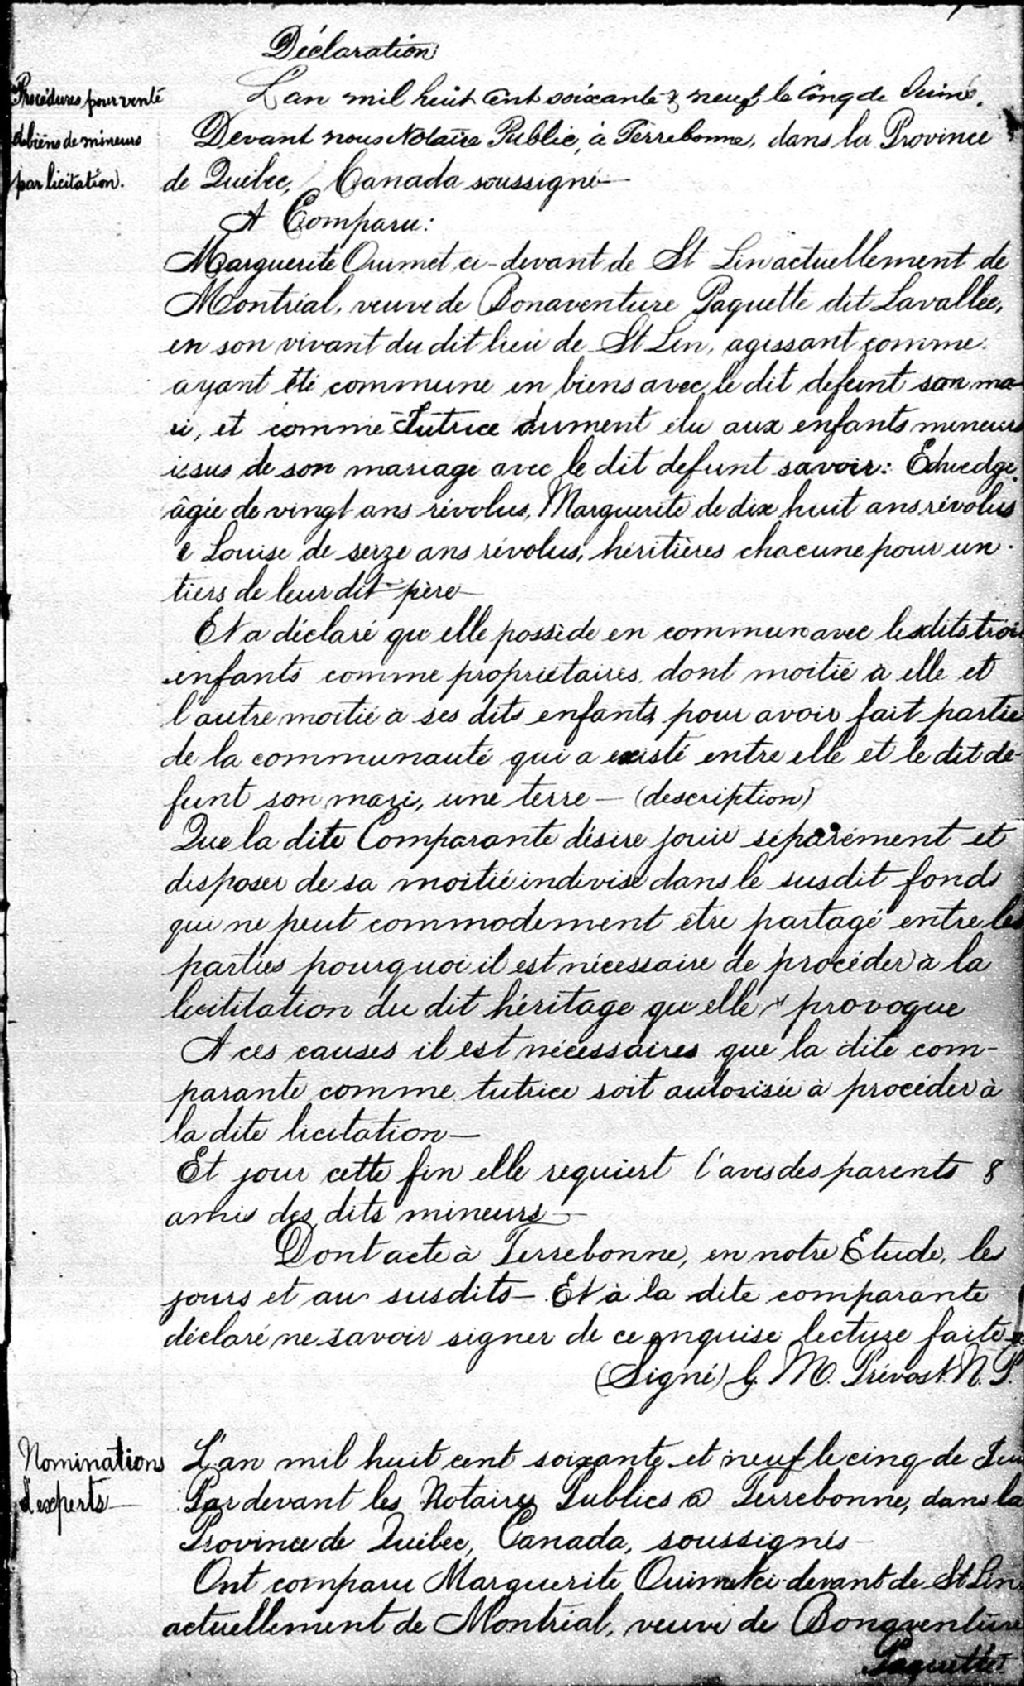 Déclaration
Procédures pour vente
de biens de mineurs
par licitation.
L'an mil huit cent soixante & neuf le cinq de Juin.
Devant nous Notaire Public, à Terrebonne, dans la Province
de Québec, Canada soussigné —
A Comparu:
Marguerite Ouimet ci-devant de St Lin actuellement de
Montréal, veuve de Bonaventure Paquette dit Lavallée,
en son vivant du dit lieu de St Lin, agissant comme
ayant été commune en biens avec le dit defunt son ma-
ri, et comme Tutrice dument élu aux enfants mineurs
issus de son mariage avec le dit defunt savoir: Edwedge
âgée de vingt ans révolus, Marguerite de dix huit ans révolus
& Louise de seize ans révolus, héritières chacune pour un
tiers de leur dit père —
Et a déclaré qu'elle possède en commun avec les dits trois
enfants comme propriétaires, dont moitié à elle et
l'autre moitié a ses dits enfants, pour avoir fait partie
de la communauté qui a existé entre elle et le dit de-
funt son mari, une terre — (description)
Que la dite Comparante désire jouir séparément et
disposer de sa moitié indivise dans le susdit fonds
qui ne peut commodement être partagé entre les
parties pourquoi il est nécessaire de procéder à la
licititation du dit héritage qu'elle provoque
A ces causes il est nécessaires que la dite com-
parante comme tutrice soit autorisée à procéder à
la dite licitation —
Et pour cette fin elle requiert l'avis des parents &
amis des dits mineurs —
Dont acte à Terrebonne, en notre Etude, les
jours et an susdits — Et a la dite comparante
déclaré ne savoir signer de ce enquise lecture faite
(Signé) G. M. Prévost N. P.
Nominations
d'experts —
L'an mil huit cent soixante et neuf le cinq de Juin
Par devant les Notaires Publics à Terrebonne, dans la
Province de Québec, Canada, soussignés —
Ont comparu Marguerite Ouimet ci-devant de St Lin
actuellement de Montréal, veuve de Bonaventure
Paquette